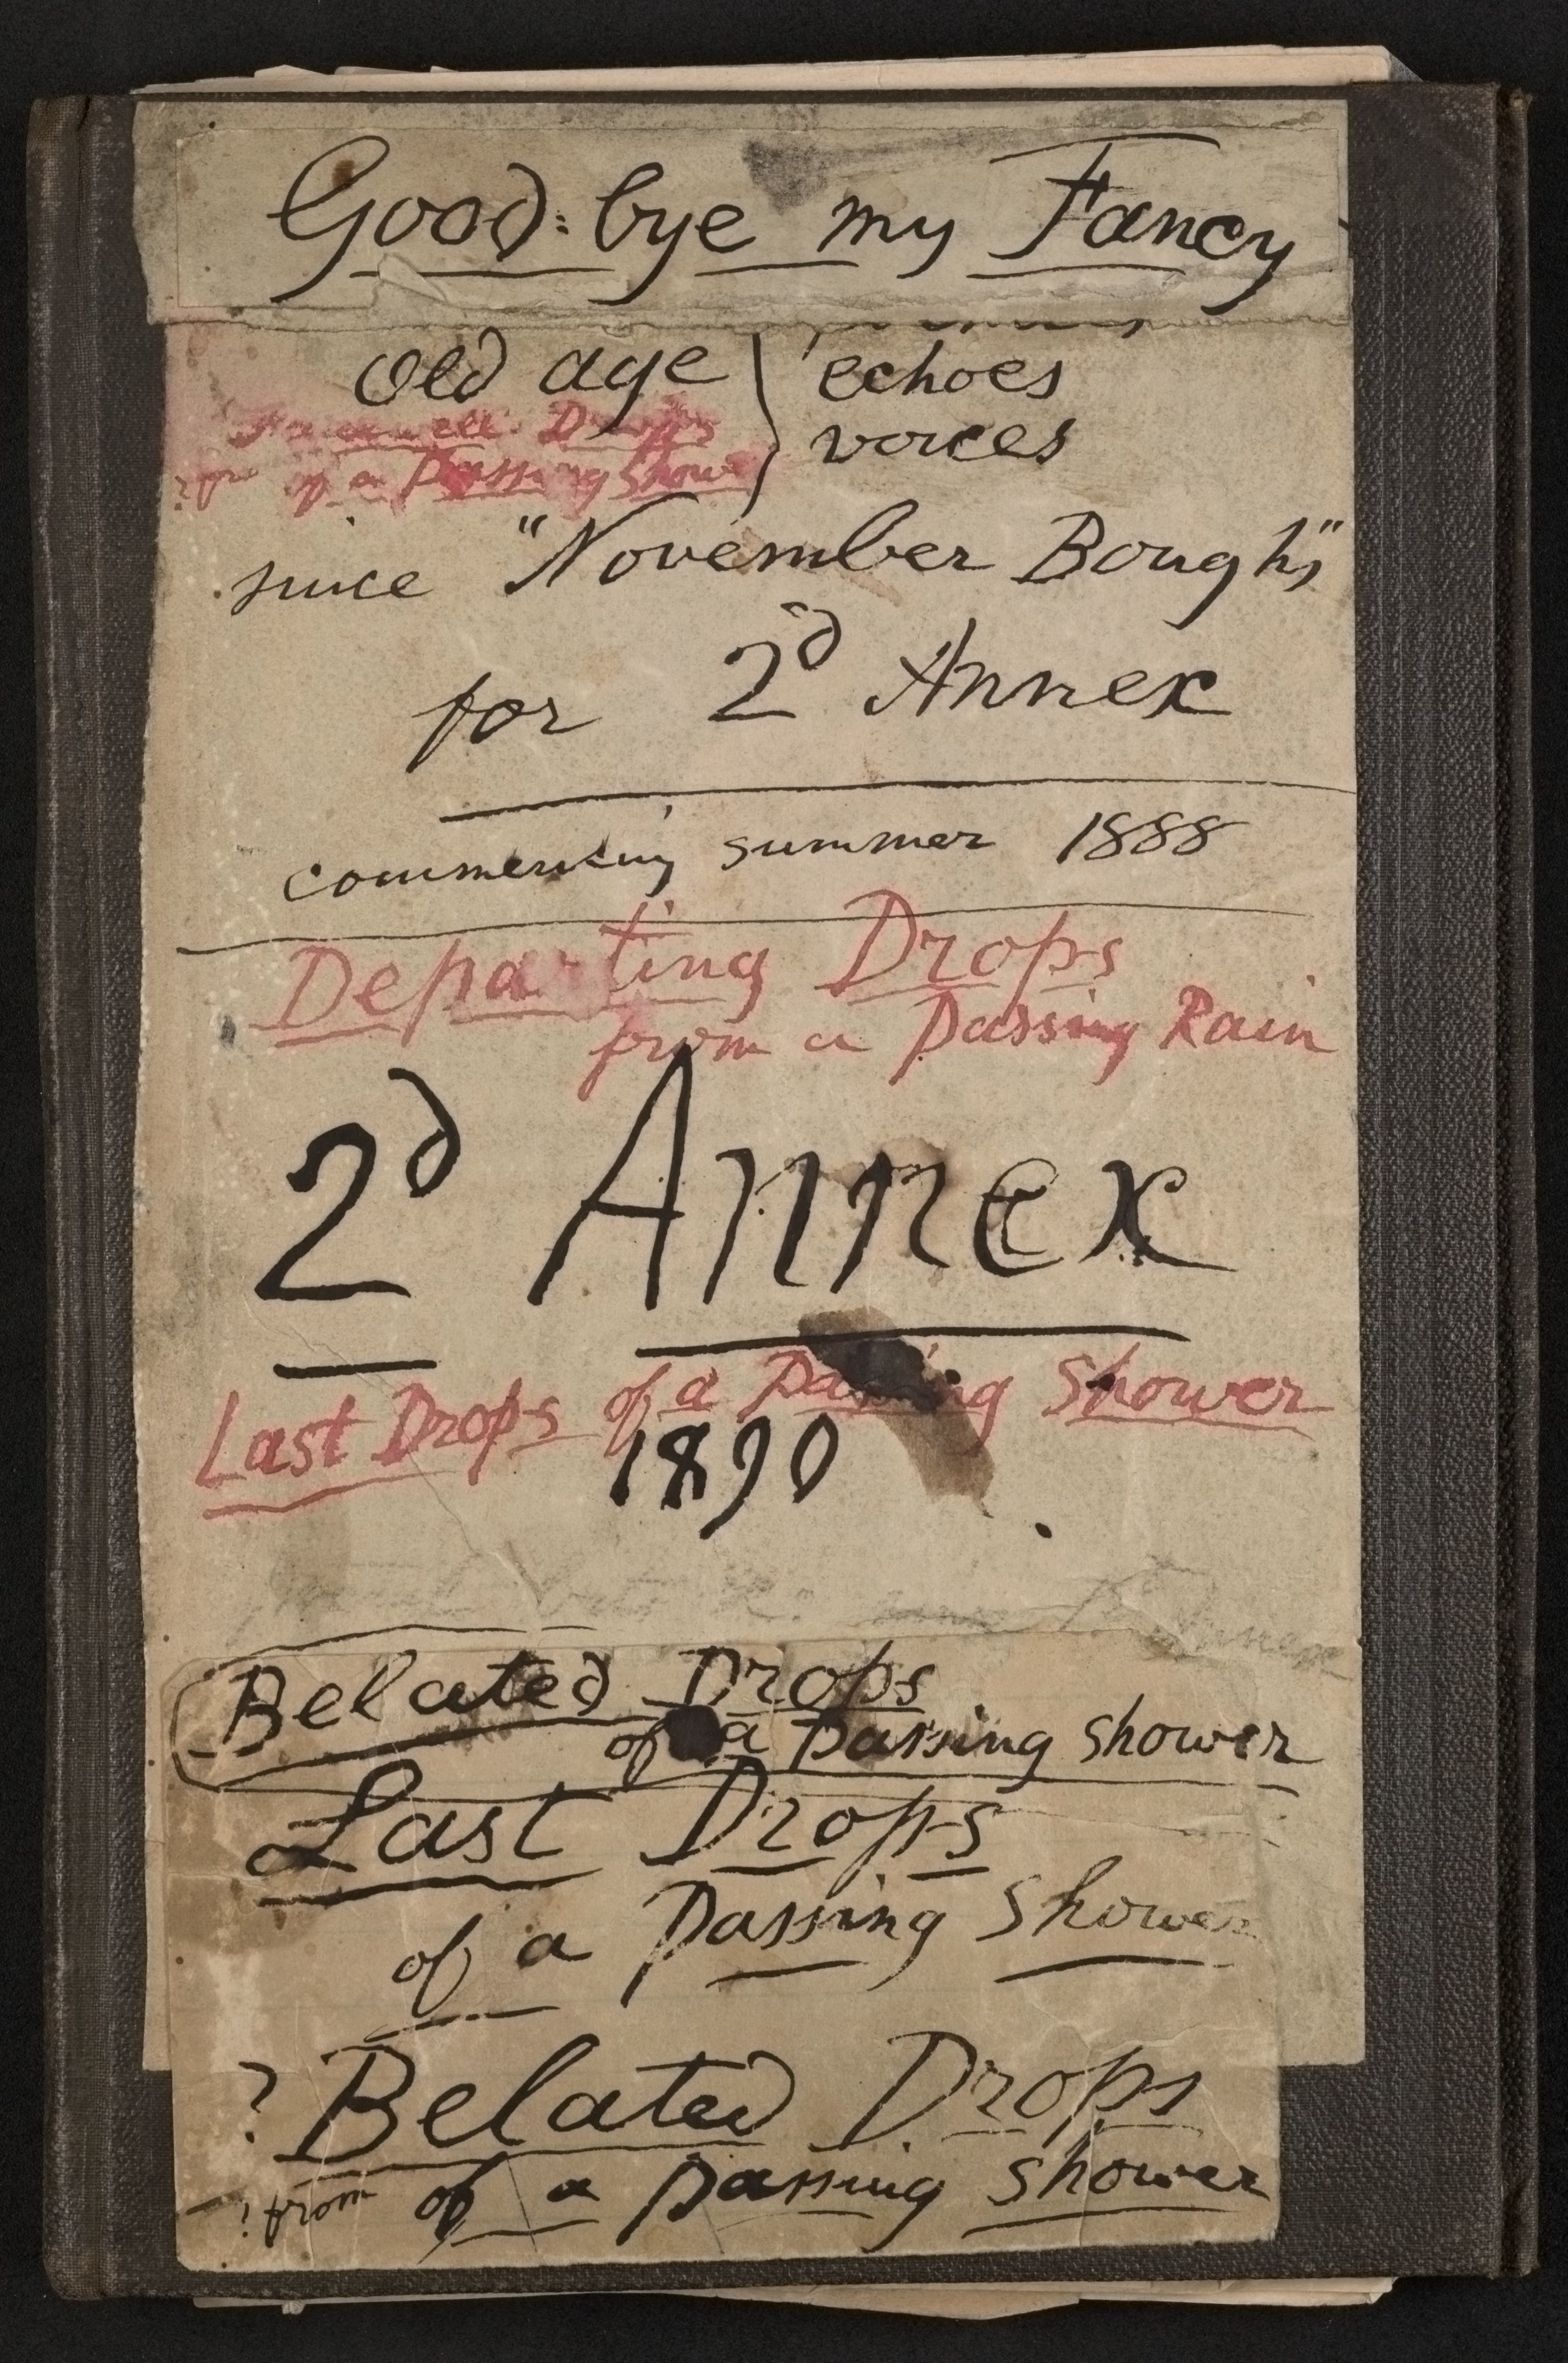 Good-bye my Fancy
old age echoes
voices
Farewell Drops
? from of a Passing Shower
since "November Boughs"
for 2d Annex
commencing summer 1888
Departing Drops
from a Passing Rain
2d Annex
Last Drops of a Passing Shower
1890
Belated Drops
of a Passing shower
Last Drops
of a Passing Shower
? Belated Drops
? from of a passing shower